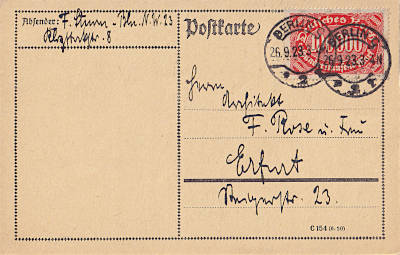 Absender: F. Sturm - Bln. N.W. 23
Klopstockstr. 8
Postkarte
BERLIN
26.9.23.3-
* 2
BERLIN
26.9.23.3-4N
* 2 *
Herrn
Architekt
F. Rose u. Frau
Erfurt
Steigerstr. 23.
C 154